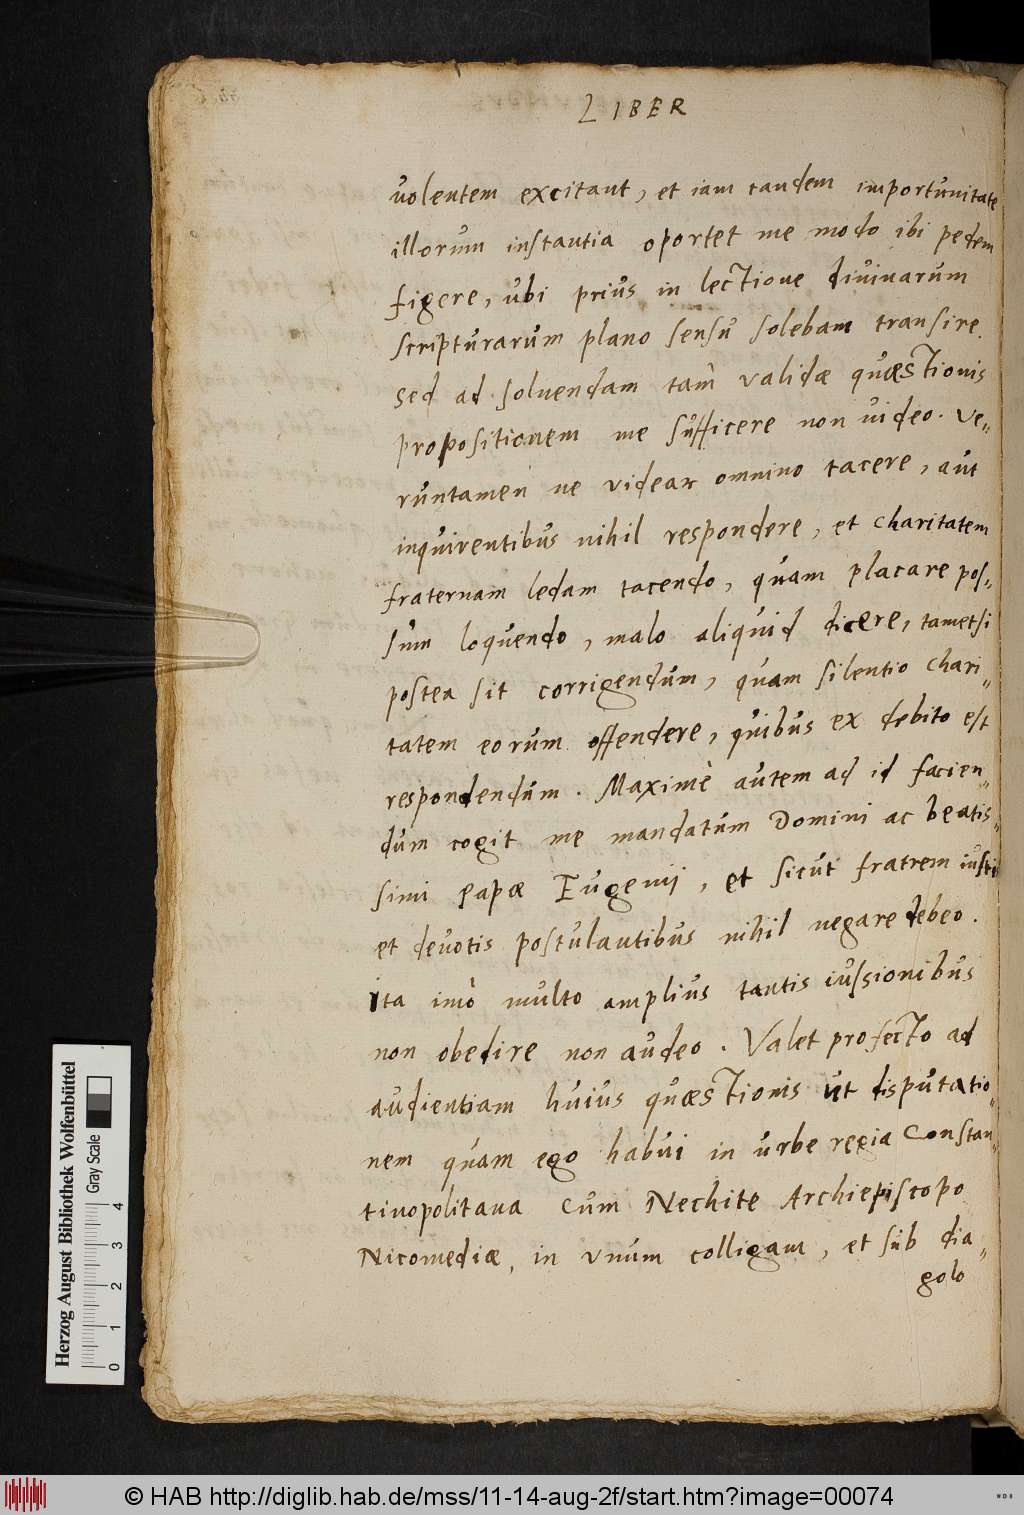 LIBER
uolentem excitant, et iam tandem importunitate
illorum instantia oportet me modo ibi pedem
figere, ubi prius in lectione diuinarum
scripturarum plano sensu solebam transire.
Sed ad soluendam tam validæ quæstionis
propositionem me sufficere non uideo. Ve„
runtamen ne videar omnino tacere, aut
inquirentibus nihil respondere, et charitatem
fraternam ledam tacendo, quam placare pos„
sum loquendo, malo aliquid dicere, tametsi
postea sit corrigendum, quam silentio chari„
tatem eorum offendere, quibus ex debito est
respondendum. Maximè autem ad id facien„
dum cogit me mandatum Domini ac beatis„
simi papæ Eugenij, et sicut fratrem iusti
et deuotis postulantibus nihil negare debeo.
ita imò multo amplius tantis iussionibus
non obedire non audeo. Valet profecto ad
audientiam huius quæstionis ut disputatio„
nem quam ego habui in urbe regia Constan„
tinopolitana cum Nechite Archiepiscopo
Nicomediæ, in vnum colligam, et sub dia„
golo
Herzog August Bibliothek Wolfenbüttel
Gray Scale
0 1 2 3 4
© HAB http://diglib.hab.de/mss/11-14-aug-2f/start.htm?image=00074